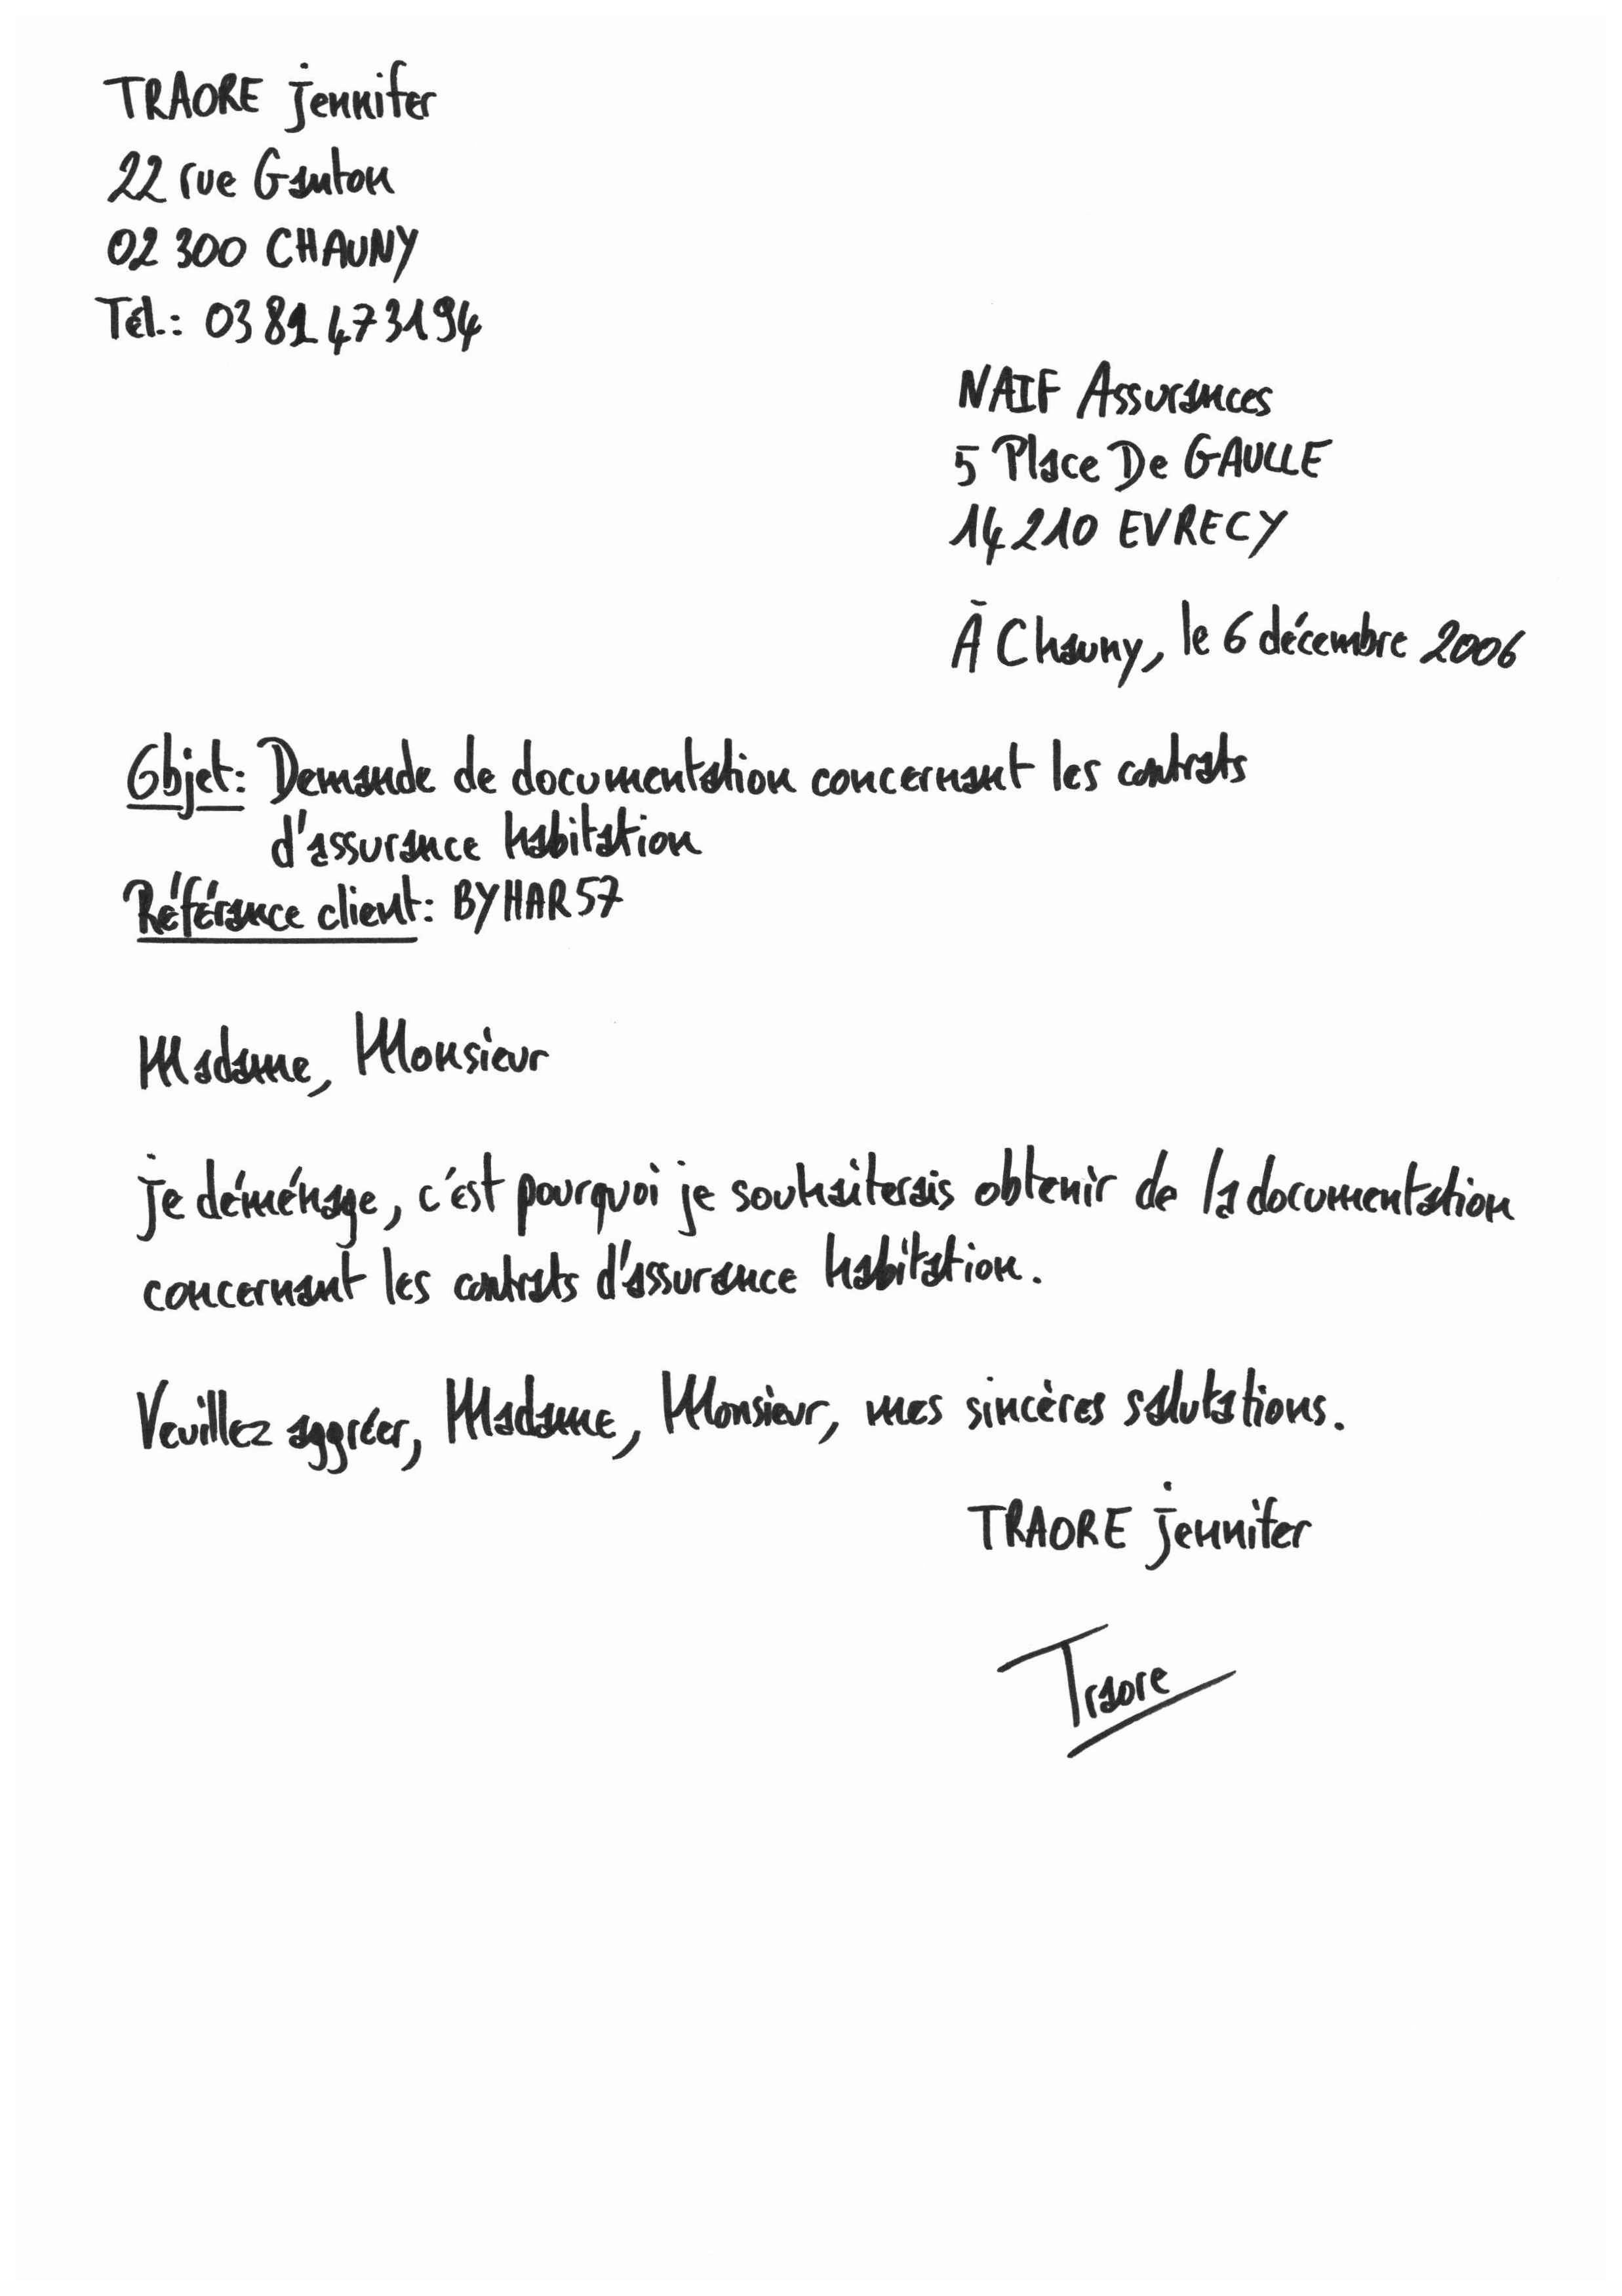 TRAORE Jennifer
22 rue Ganton
02 300 CHAUNY
Tél.: 03 81 47 31 94
NAIF Assurances
5 Place De GAULLE
14 210 EVRECY
À Chauny, le 6 décembre 2006
Objet: Demande de documentation concernant les contrats
d'assurance habitation
Référance client: BYHAR57
Madame, Monsieur
Je déménage, c'est pourquoi je souhaiterais obtenir de la documentation
concernant les contrats d'assurance habitation.
Veuillez aggréer, Madame, Monsieur, mes sincères salutations.
TRAORE Jennifer
Traore